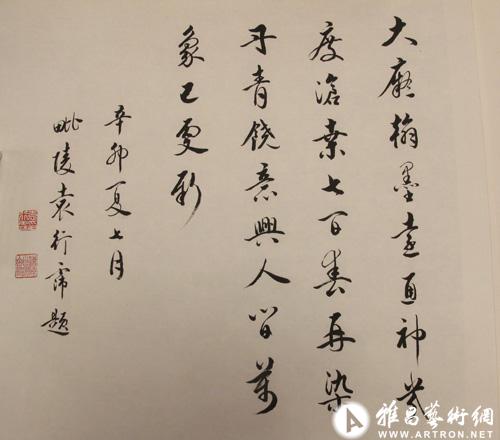 大癡翰墨通神幾
度滄桑七百春再染
丹青饒意興人間萬
象已更新
辛卯夏七月
毗陵袁行霈題
雅昌藝術網
WWW.ARTRON.NET